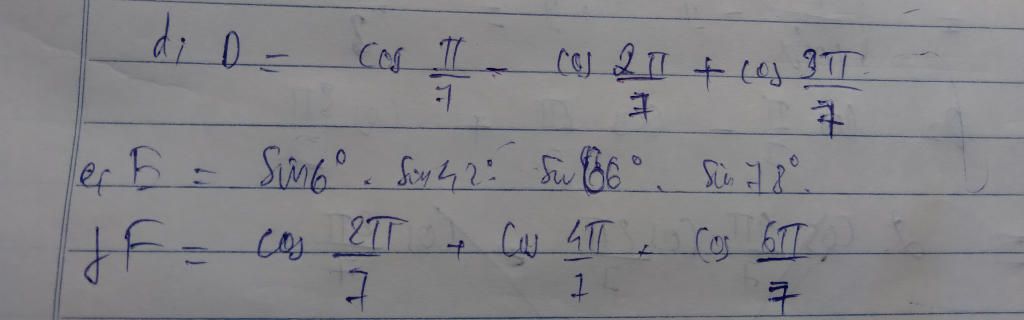 d; D = cos π/7 - cos 2π/7 + cos 3π/7
e, E = Sin6°. Sin42°. Sin66°. Sin78°.
f F = cos 2π/7 + cos 4π/7 + cos 6π/7